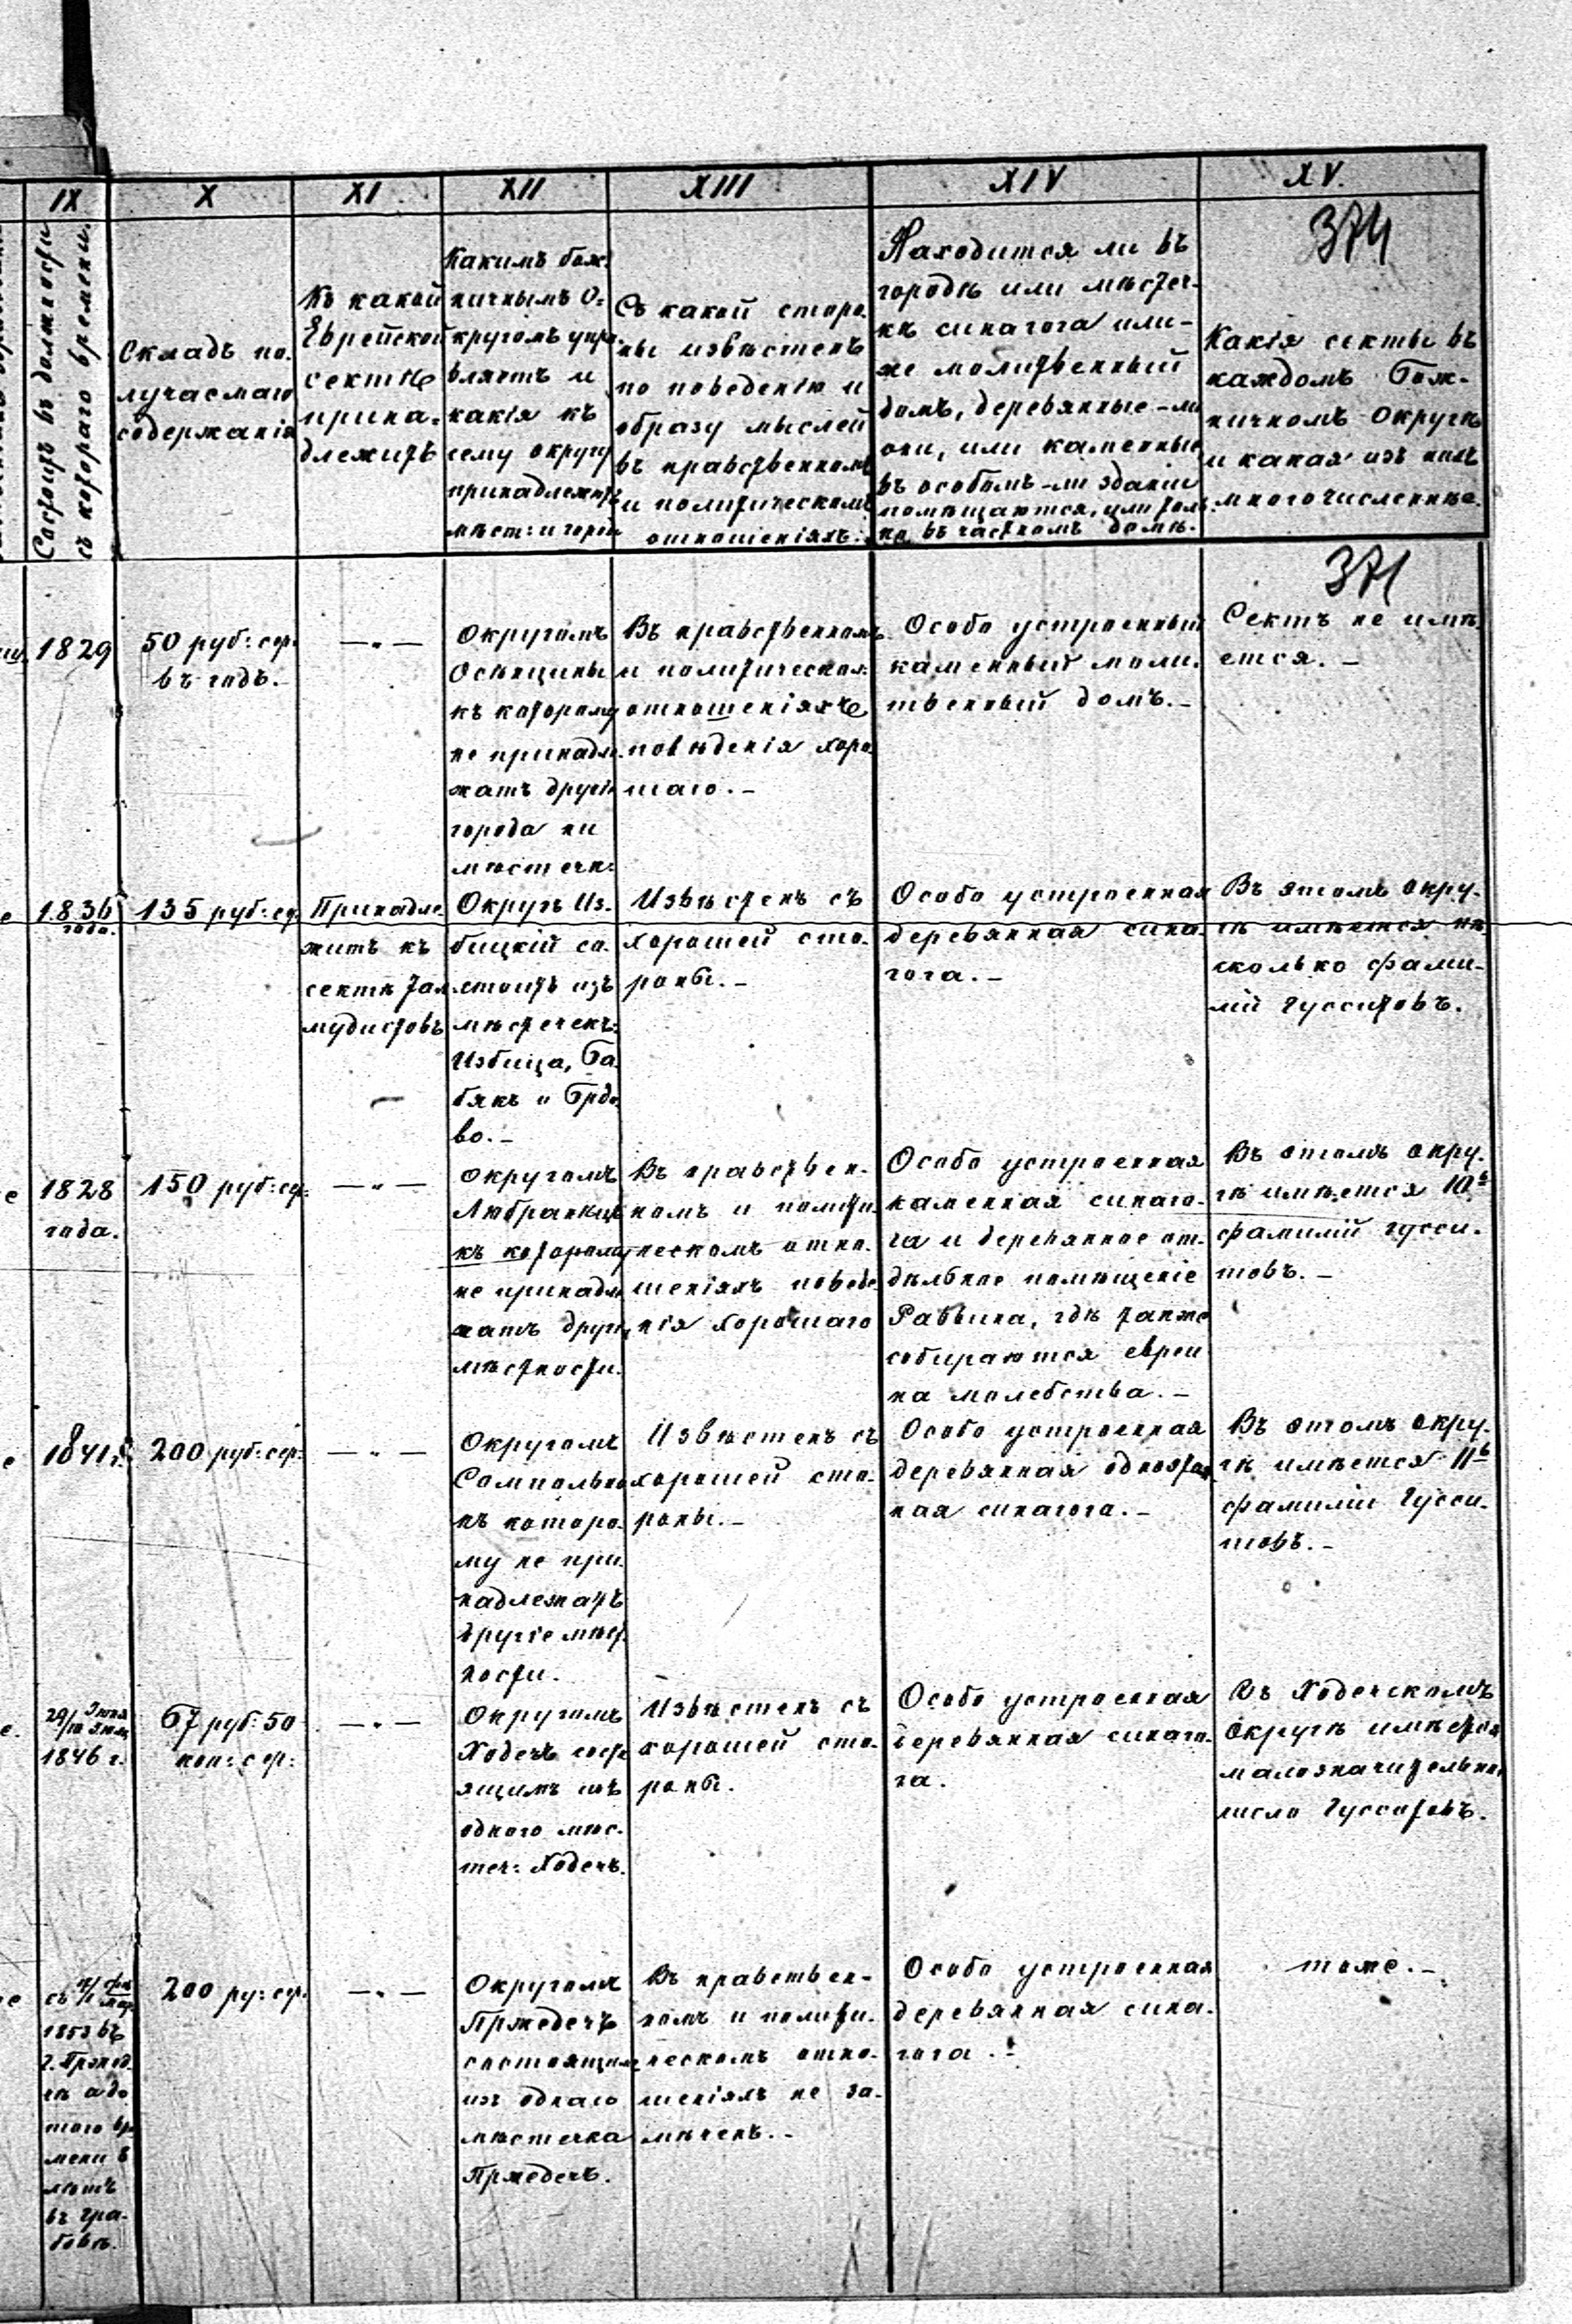 IX
X
XI
XII
XIII
XIV
XV.
Состоитъ въ должности
съ котораго времени.
Складъ по-
лучаемаго
содержанія
Къ какой
Еврейской
сектѣ
прина-
длежитъ
Какимъ бож-
ничнымъ О-
кругомъ упра-
вляетъ и
какія къ
сему округу
принадлежатъ
мѣст: и город
Съ какой сторо-
ны извѣстенъ
по поведенію и
образу мыслей
въ нравственномъ
и политическомъ
отношеніяхъ.
Находится ли въ
городѣ или мѣстеч-
кѣ синагога или-
же молитвенный
домъ, деревянные-ли
они, или каменные
въ особомъ-ли зданіи
помѣщаются, или толь-
ко въ частномъ домѣ.
374
Какія секты въ
каждомъ Бож-
ничномъ Округѣ
и какая изъ нихъ
многочисленнѣе.
371
1829
50 руб: сер:
въ годъ.-
— " —
Округомъ
Осѣнцины
къ которому
не принадле-
жатъ другіе
города ни
мѣстечк:
Въ нравственномъ
и политическом:
отношеніяхъ
повѣденія хоро-
шаго.-
Особо устроенный
каменный моли-
твенный домъ.-
Сектъ не имѣ-
ется.-
1836
года.
135 руб: сер
Принадле-
житъ къ
сектѣ Тал-
мудистовъ
Округъ Из-
бицкій со-
стоитъ изъ
мѣстечекъ:
Избица, Ба-
бякъ и Брдо-
во.-
Извѣстенъ съ
хорошей сто-
роны.-
Особо устроенная
деревянная сина-
гога.-
Въ этомъ окру-
гѣ имѣется нѣ-
сколько фами-
лій Гусситовъ.
1828
года.
150 руб: сер:
— " —
Округомъ
Любранецъ
къ которому
не принадле-
жатъ другія
мѣстности.
Въ нравствен-
номъ и полити-
ческомъ отно-
шеніяхъ поведе-
нія хорошаго
Особо устроенная
каменная синаго-
га и деревянное от-
дѣльное помѣщеніе
Раввина, гдѣ также
собираются евреи
на молебства.-
Въ этомъ окру-
гѣ имѣется 10ь
фамилій Гусси-
товъ.-
1841 г.
200 руб: сер:
— " —
Округомъ
Сомпольно
къ которо-
му не при-
надлежатъ
другіе мѣст-
ности.
Извѣстенъ съ
хорошей сто-
роны.-
Особо устроенная
деревянная одноэтаж
ная синагога.-
Въ этомъ окру-
гѣ имѣется 11ь
фамилій Гусси-
товъ.-
29/10 Іюня Іюля
1846 г.
67 руб: 50
коп: сер:
— " —
Округомъ
Ходечъ состо-
ящимъ изъ
одного мѣс-
теч: Ходечъ.
Извѣстенъ съ
хорошей сто-
роны.
Особо устроенная
деревянная синаго-
га.
Въ Ходечскомъ
Округѣ имѣется
малозначительное
число Гусситовъ.
1853 въ
того вре-
мени
въ Гра-
бовѣ.
200 ру: сер.
— " —
Округомъ
Пржедечъ
состоящимъ
изъ одного
мѣстечка
Пржедечъ.
Въ нравствен-
номъ и полити-
ческомъ отно-
шеніяхъ не за-
мѣченъ.-
Особо устроенная
деревянная сина-
гога.-
тоже.-